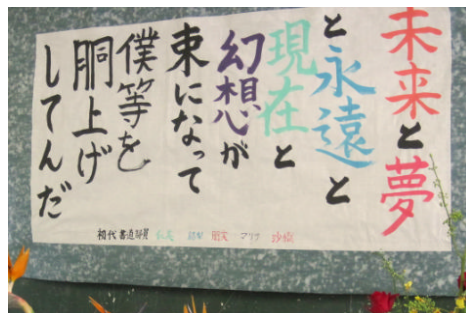 未来と夢
と永遠と
現在と
幻想が
束になって
僕等を
胴上げ
してんだ
初代書道部員